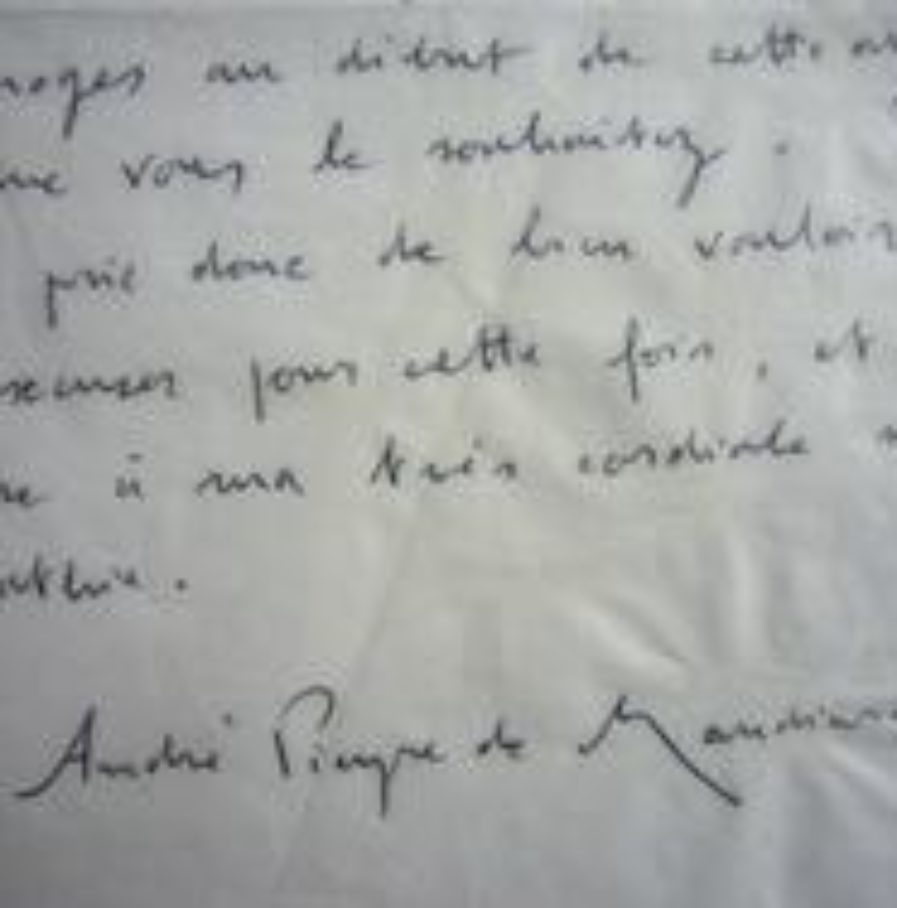 moges au début de cette
que vous le souhaitez.
prie donc de bien vouloir
excuser pour cette fois, et
à ma très cordiale
athie.
André Pieyre de Mandiarg